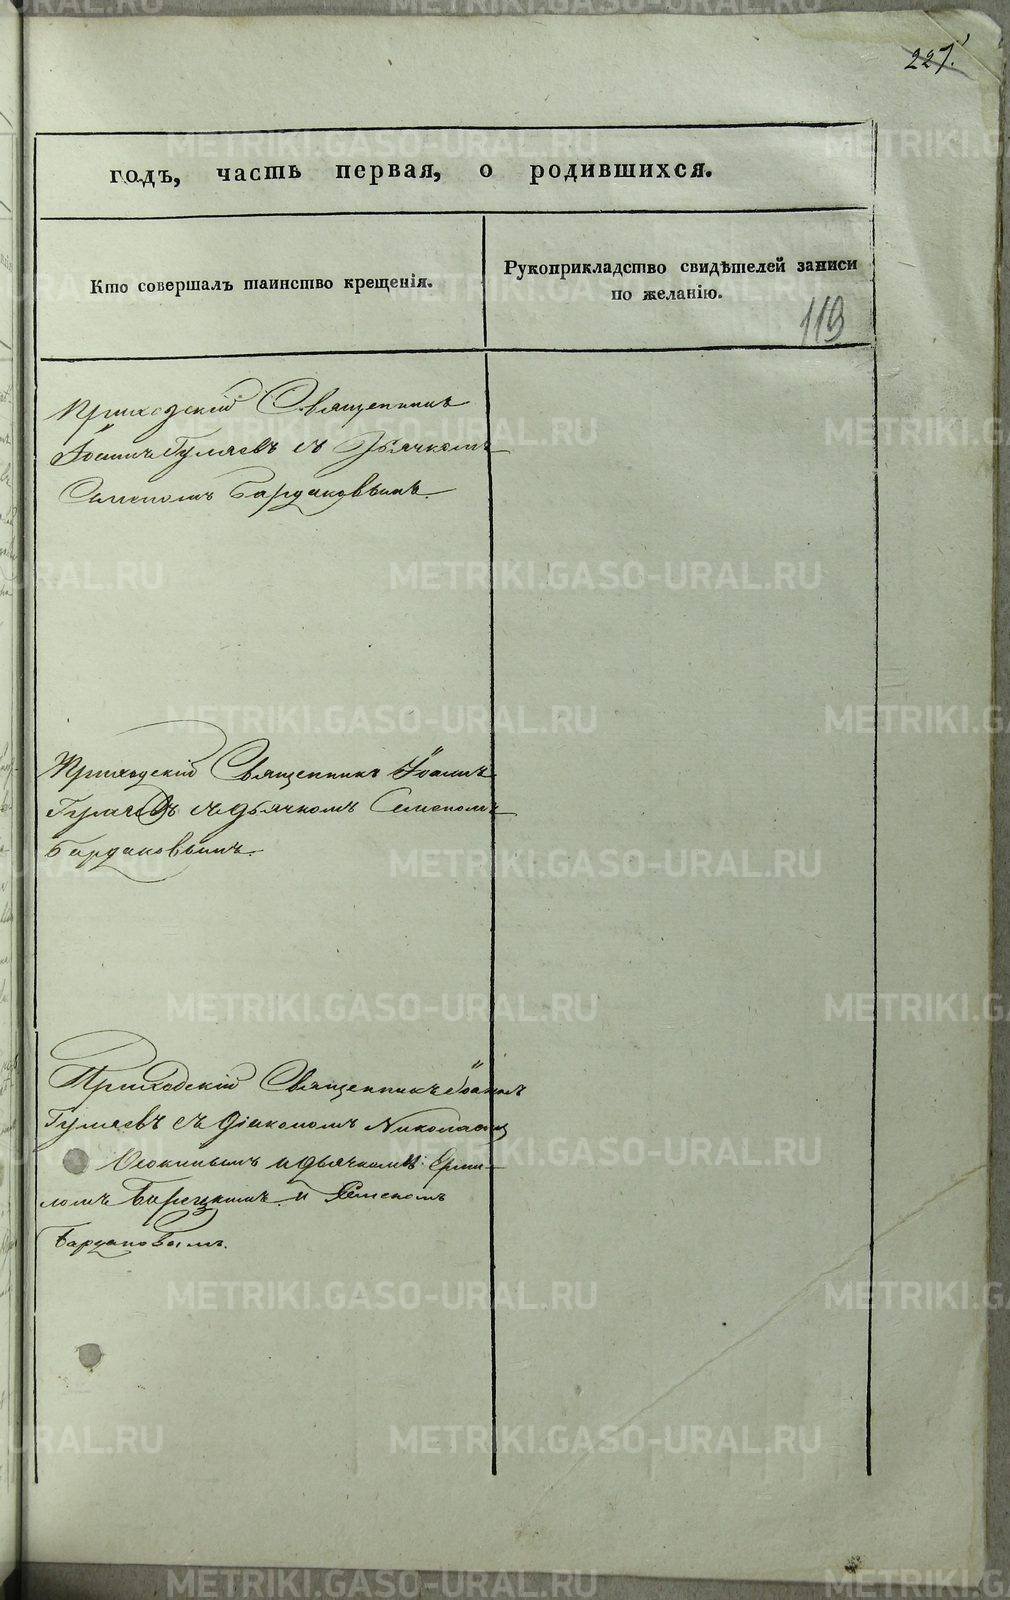 227.
годъ, часть первая, о родившихся.
Кто совершалъ таинство крещенія.
Рукоприкладство свидѣтелей записи
по желанію.
119
Приходскій Священникъ
Іоаннъ Гуляевъ съ Дьячкомъ
Семеномъ Бардаковымъ.
Приходскій Священникъ Іоаннъ
Гуляевъ съ дьячкомъ Семеномъ
Бардаковымъ.
Приходскій Священникъ Іоаннъ
Гуляевъ съ діакономъ Николаемъ
Осокинымъ и дьячками: Ерми-
ломъ и Семеномъ
Бардаковымъ.
METRIKI.GASO-URAL.RU